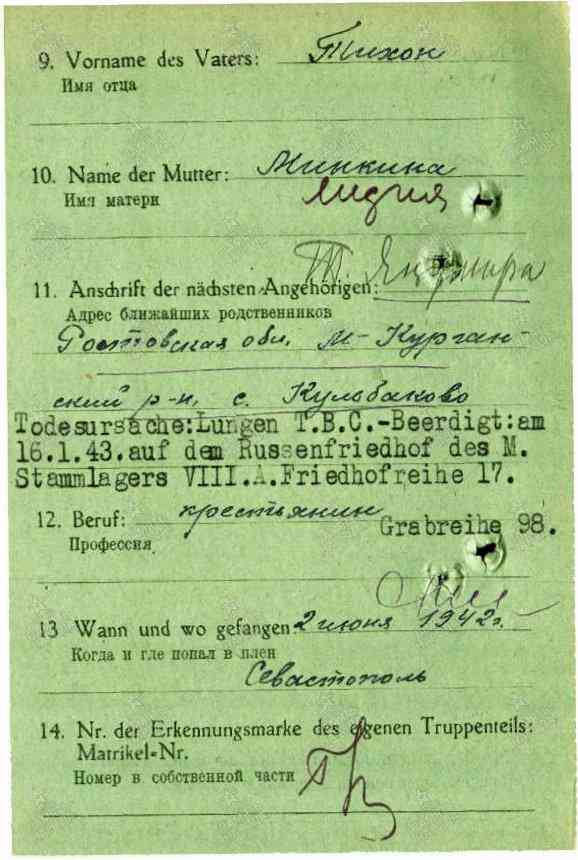 9. Vorname des Vaters: Тихон
Имя отца
10. Name der Mutter: Минкина
Имя матери Лидия
11. Anschrift der nächsten Angehörigen:
Адрес ближайших родственников
Ростовская обл. М-Курган-
ский р-н, с. Кульбаково
Todesursache:Lungen T.B.C.-Beerdigt:am
16.1.43.auf dem Russenfriedhof des M.
Stammlagers VIII.A.Friedhofreihe 17.
12. Beruf: крестьянин Grabreihe 98.
Профессия
13 Wann und wo gefangen: 2 июня 1942г.
Когда и где попал в плен
Севастополь
14. Nr. der Erkennungsmarke des eigenen Truppenteils:
Matrikel-Nr.
Номер в собственной части